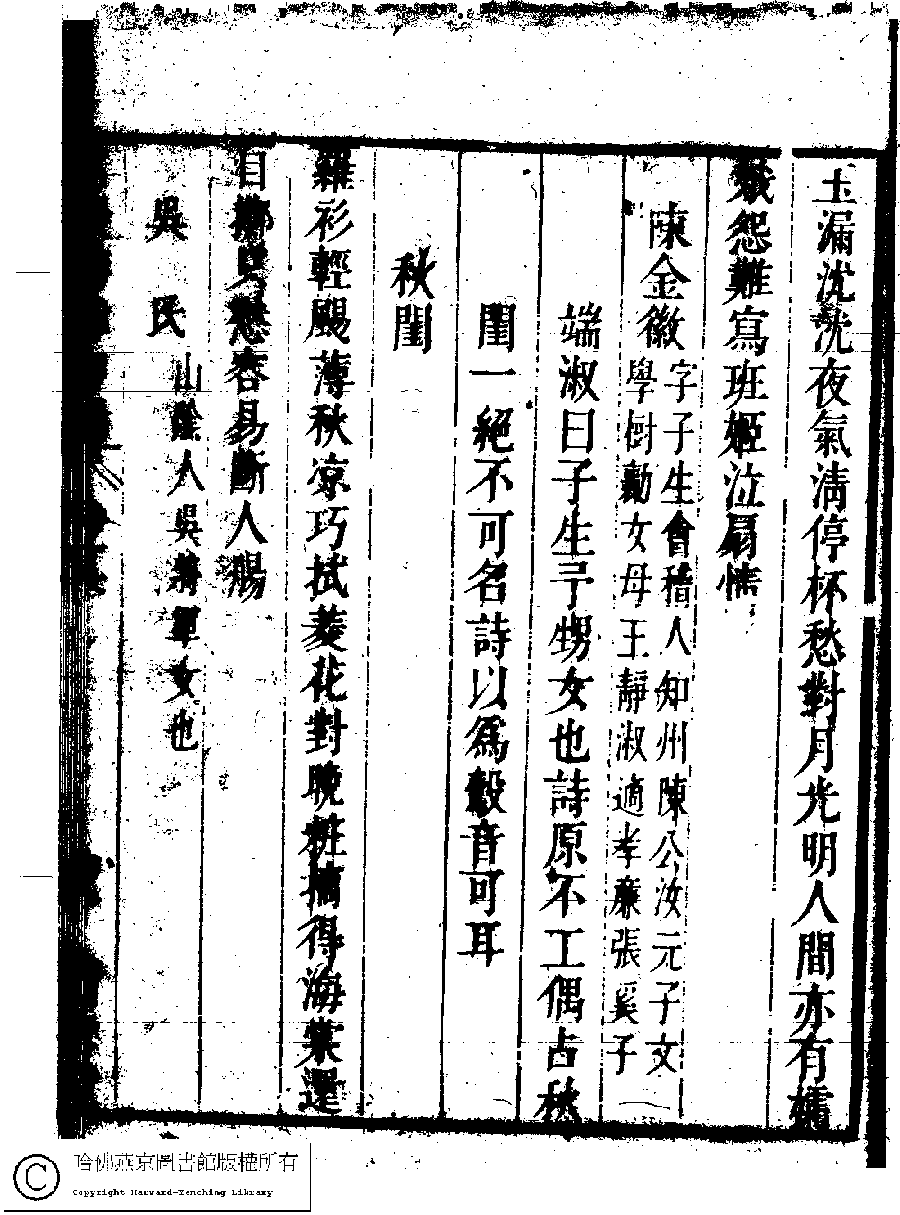 玉漏沈沈夜氣清停杯愁對月光明人間亦有孀
娥怨難寫班姬泣扇情
陳金徽字子生會稽人知州陳公汝元子文
學樹勳女母王靜淑適孝廉張奚子
端淑曰子生予甥女也詩原不工偶占秋
閨一絕不可名詩以爲鷇音可耳
秋閨
羅衫輕颺薄秋凉巧拭菱花對晚粧摘得海棠還
自擲與愁容易斷人腸
吳氏山陰人吳 女也
哈佛燕京圖書館版權所有
Copyright Harvard-Yenching Library